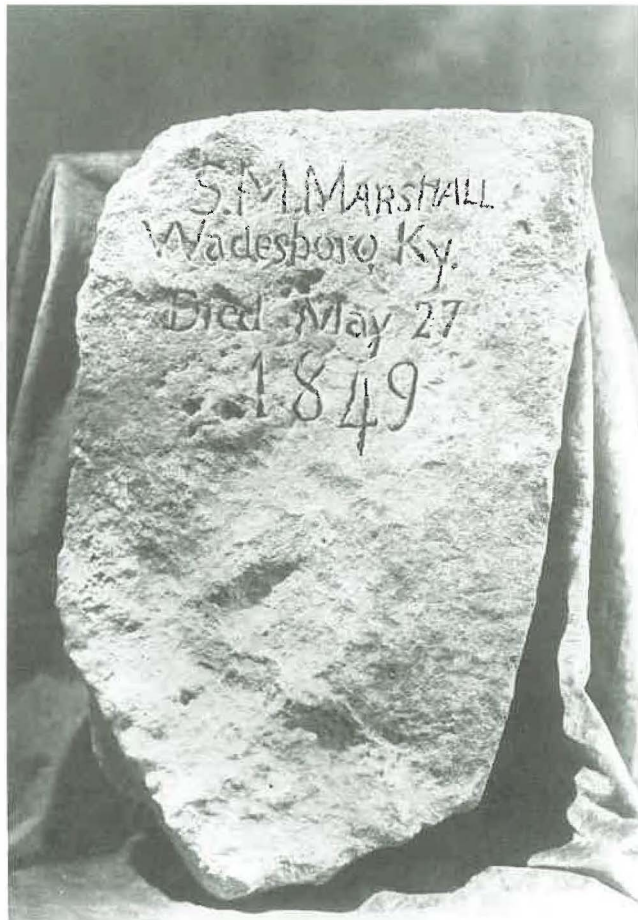 S.M. MARSHALL
Wadesboro, Ky.
Died May 27
1849